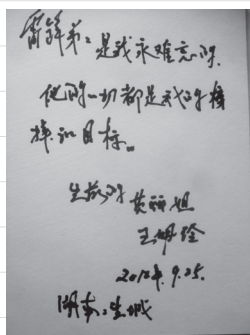 雷锋弟：是我永难忘的.
他的一切都是我的榜
样和目标。
生前的黄丽姐
王
2012年.9.25.
湖南：望城